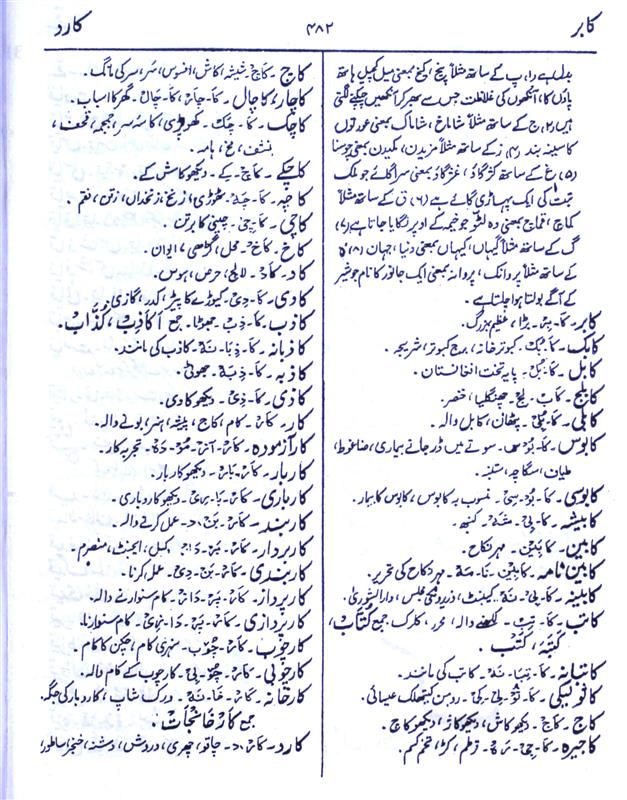 کابر
۴۸۲
کارد
بدلہ ہے (۱) پ کے ساتھ مثلاً پنج، کیخ بمعنی میل کچیل ہاتھ
پاؤں کا، آنکھوں کی غلاظت جس سے سبھر کر آنکھیں چپکنے لگتی
ہیں (۲) ج کے ساتھ مثلاً شاماخ، شاماک بمعنی عورتوں
کا سینہ بند (۴) ز کے ساتھ مثلاً مزیدن، مکیدن بمعنی چوسنا
(۵) غ کے ساتھ کژگاؤ، غژگاؤ بمعنی سراگائے جو ملک
تبت کی ایک پہاڑی گائے ہے (۶) ق کے ساتھ مثلاً
کماج، قماج بمعنی وہ لٹو جو خیمہ کے اوپر لگایا جاتا ہے (۷)
گ کے ساتھ مثلاً کیہاں، گیہاں بمعنی دنیا، جہان (۸) ہ
کے ساتھ مثلاً پروانک، پروانہ بمعنی ایک جانور کا نام جو شیر
کے آگے بولتا ہوا چلتا ہے۔
کابر۔ کَا۔ بِر۔ بڑا، عظیم، بزرگ۔
کابک۔ کَا۔ بُک۔ کبوتر خانہ، برج کبوتر، شریجہ۔
کابل۔ کَا۔ بُل۔ پایہ تخت افغانستان۔
کابلج۔ کَاب۔ لِج۔ چھنگلیا، خنصر۔
کابلی۔ کَا۔ بُلِی۔ پٹھان، کابل والہ۔
کابوس۔ کَا۔ بُوس۔ سوتے میں ڈر جانے بیماری، ضاغوط،
کابوسی۔ کَا۔ بُو۔ سِی۔ منسوب بہ کابوس، کابوس کا بیمار۔
کابیشہ۔ کَا۔ بِی۔ شَہ۔ کنبھ۔
کابین۔ کَا۔ بِیْن۔ مہر نکاح۔
کابین نامہ۔ کَا۔ بِیْن۔ نَا۔ مَہ۔ مہر نکاح کی تحریر۔
کابینہ۔ کَا۔ بِی۔ نَہ۔ کیبنٹ، مجلس، دارالشوریٰ۔
کاتب۔ کَا۔ تِب۔ لکھنے والہ، محرر، کلرک۔ جمع کُتّاب،
کَتَبَہ، کُتُب۔
کاتبانہ۔ کَا۔ تِبَا۔ نَہ۔ کاتب کی مانند۔
کاتولیکی۔ کَا۔ تُو۔ لِی۔ کِی۔ رومن کیتھلک عیسائی۔
کاج۔ کَاج۔ دیکھو کاش، دیکھو کاژ، دیکھو کاچ۔
کاجیرہ۔ کَا۔ جِی۔ رَہ۔ قرطم، کڑ، تخم کسم۔
کاچ۔ کَاچ۔ شیشہ، کاش، افسوس، سَر، سر کی مانگ۔
کاچار، کاچال۔ کَا۔ چَار، کَا۔ چَال۔ گھر کا اسباب۔
کاچک۔ کَا۔ چَک۔ کھوپڑی، کاسۂ سر، جمجمہ، قحف،
کاچکے۔ کَاچ۔ کے۔ دیکھو کاش کے۔
کاچہ۔ کَا۔ چَہ۔ ٹھوڑی، زنخ، زنخداں، زقن، نقم۔
کاچی۔ کَا۔ چِی۔ چینی کا برتن۔
کاخ۔ کَاخ۔ محل، گڑھی، ایوان۔
کاد۔ کَاد۔ لالچ، حرص، ہوس۔
کادی۔ کَا۔ دِی۔ کیوڑے کا پیڑ، کدر، گاذی۔
کاذب۔ کَا۔ ذِب۔ جھوٹا۔ جمع اَکَاذِب، کُذَّاب۔
کاذبانہ۔ کَا۔ ذِبَا۔ نَہ۔ کاذب کی مانند۔
کاذبہ۔ کَا۔ ذِبَہ۔ جھوٹی۔
کاذی۔ کَا۔ ذِی۔ دیکھو کادی۔
کار۔ کَار۔ کام، کاج، پیشہ، ہنر، بونے والہ۔
کارآزمودہ۔ کَار۔ آز۔ مُو۔ دَہ۔ تجربہ کار۔
کاربار۔ کَار۔ بَار۔ دیکھو کاروبار۔
کارباری۔ کَار۔ بَا۔ رِی۔ دیکھو کاروباری۔
کاربند۔ کَار۔ بَنْد۔ عمل کرنے والہ۔
کاربردار۔ کَار۔ بَر۔ دَار۔ وکیل، ایجنٹ، منصرم۔
کاربندی۔ کَار۔ بَن۔ دِی۔ عمل کرنا۔
کارپرداز۔ کَار۔ پَر۔ دَاز۔ کام سنوارنے والہ۔
کارپردازی۔ کَار۔ پَر۔ دَا۔ زِی۔ کام سنوارنا۔
کارچوب۔ کَار۔ چُوب۔ سنہری کام، چکن کا کام۔
کارچوبی۔ کَار۔ چُو۔ بِی۔ کارچوب کے کام والہ۔
کارخانہ۔ کَار۔ خَا۔ نَہ۔ ورک شاپ، کاروبار کی جگہ۔
جمع کَارْخَانْجَات۔
کارد۔ کَارْد۔ چاقو، چھری، دروش، دشنہ، خنجر، ساطور،